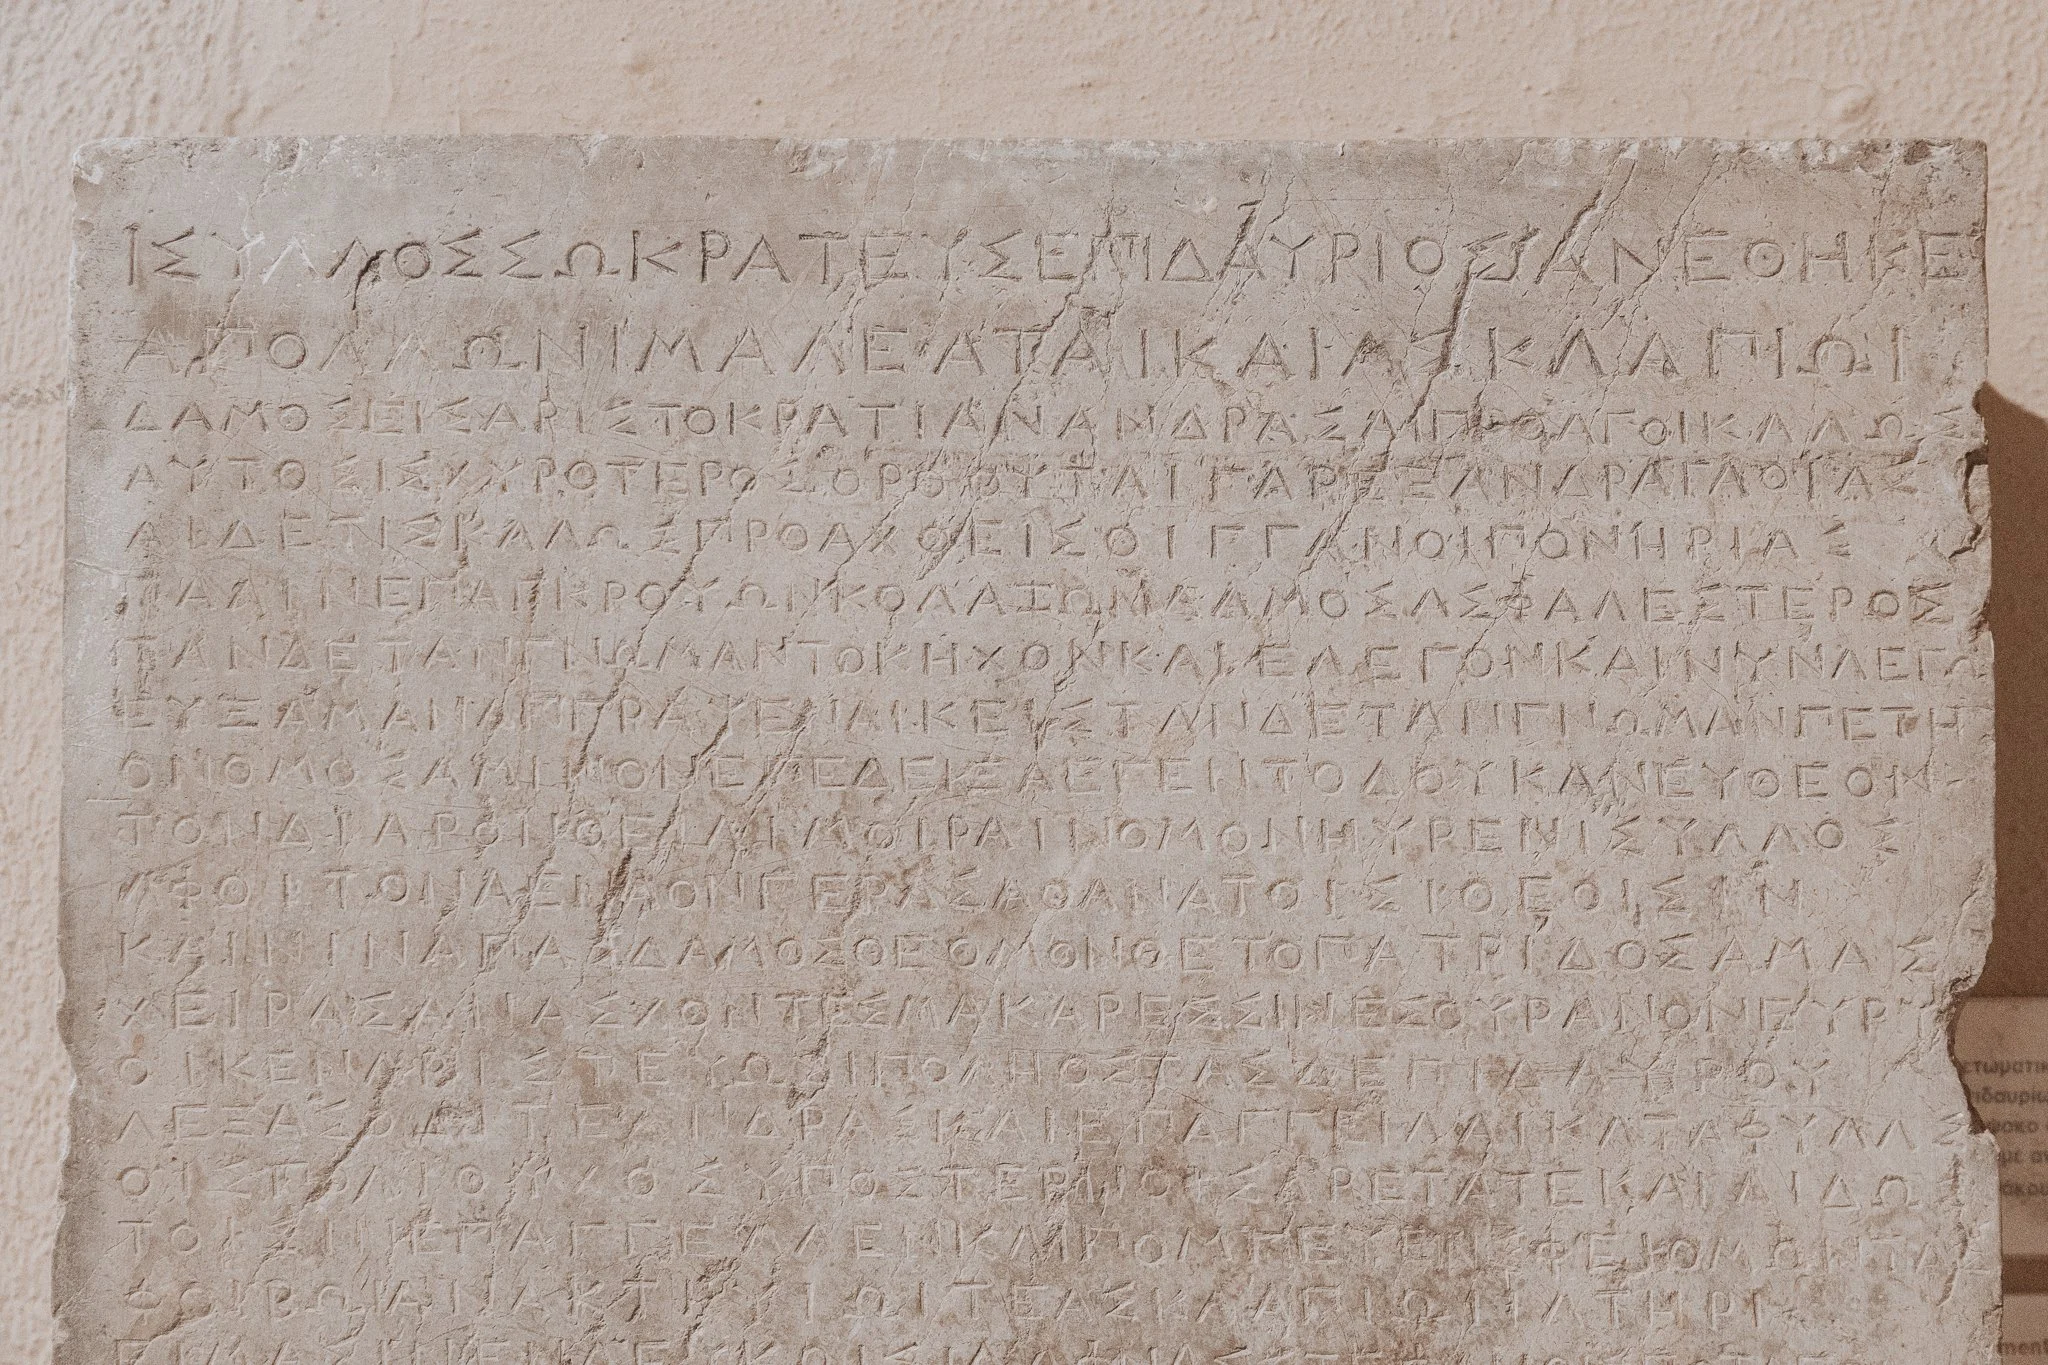 ΙΣΥΛΛΟΣΣΩΚΡΑΤΕΥΣΕΠΙΔΑΥΡΙΟΣΑΝΕΘΗΚΕ
ΑΠΟΛΛΩΝΙΜΑΛΕΑΤΑΙΚΑΙΑΣΚΛΑΠΙΩΙ
ΔΑΜΟΣΕΙΣΑΡΙΣΤΟΚΡΑΤΙΑΝΑΝΔΡΑΣΑΙΠΡΟΑΓΟΙΚΑΛΩΣ
ΑΥΤΟΣΙΣΧΥΡΟΤΕΡΟΣΟΡΘΟΥΤΑΙΓΑΡΕΞΑΝΔΡΑΓΑΘΙΑΣ
ΑΙΔΕΤΙΣΚΑΛΩΣΠΡΟΑΧΘΕΙΣΘΙΓΓΑΝΟΙΠΟΝΗΡΙΑΣ
ΠΑΛΙΝΕΠΑΓΚΡΟΥΩΝΚΟΛΑΖΩΝΔΑΜΟΣΑΣΦΑΛΕΣΤΕΡΟΣ
ΤΑΝΔΕΤΑΝΓΝΩΜΑΝΤΟΚΗΧΟΝΚΑΙΕΛΕΓΟΝΚΑΙΝΥΝΛΕΓΩ
ΕΥΞΑΜΑΝΑΓΓΡΑΨΕΝΑΙΚΕΙΣΤΑΝΔΕΤΑΝΓΝΩΜΑΝΠΕΤΗ
ΟΝΟΜΟΣΑΜΙΝΟΝΕΠΕΔΕΙΞΑΕΓΕΝΤΟΔΟΥΚΑΝΕΥΘΕΩΝ
ΤΟΝΔΙΑΡΟΝΘΕΙΑΙΜΟΙΡΑΙΝΟΜΟΝΗΥΡΕΝΙΣΥΛΛΟΣ
ΑΦΘΙΤΟΝΑΕΝΑΟΝΓΕΡΑΣΑΘΑΝΑΤΟΙΣΙΘΕΟΙΣΙΝ
ΚΑΙΝΙΝΑΠΑΣΔΑΜΟΣΘΕΘΜΟΝΘΕΤΟΠΑΤΡΙΔΟΣΑΜΑΣ
ΧΕΙΡΑΣΑΝΑΣΧΟΝΤΕΣΜΑΚΑΡΕΣΣΙΝΕΣΟΥΡΑΝΟΝΕΥΡΥ
ΟΙΚΕΝΑΡΙΣΤΕΥΩΣΙΠΟΛΗΟΣΤΑΣΔΕΠΙΔΑΥΡΟΥ
ΛΕΞΑΣΘΑΙΤΕΑΝΔΡΑΣΚΑΙΕΠΑΓΓΕΙΛΑΙΚΑΤΑΦΥΛΑΣ
ΟΙΣΠΟΛΙΟΥΧΟΣΥΠΟΣΤΕΡΝΟΙΣΑΡΕΤΑΤΕΚΑΙΑΙΔΩΣ
ΤΟΙΣΙΝΕΠΑΓΓΕΛΛΕΝΚΑΙΠΟΜΠΕΥΕΝΣΦΕΚΟΜΩΝΤΑΣ
ΦΟΙΒΩΙΑΝΑΚΤΙΥΙΩΙΤΑΣΚΛΑΠΙΩΙΙΑΤΗΡΙ